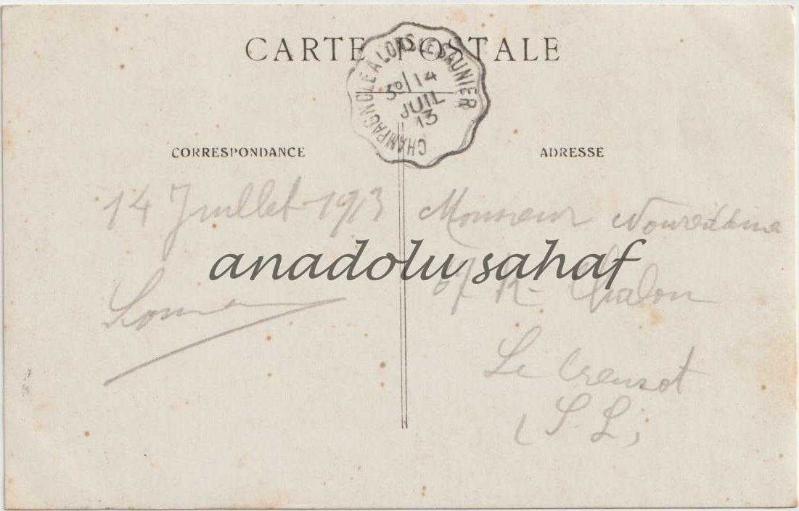 CARTE POSTALE
CHAMPAGNOLE A LONS-LE-SAUNIER
3º/14
JUIL
13
CORRESPONDANCE
ADRESSE
14 Juillet 1913
Monsieur
anadolu sahaf
R. Chalon
Le Creusot
(S. L.)